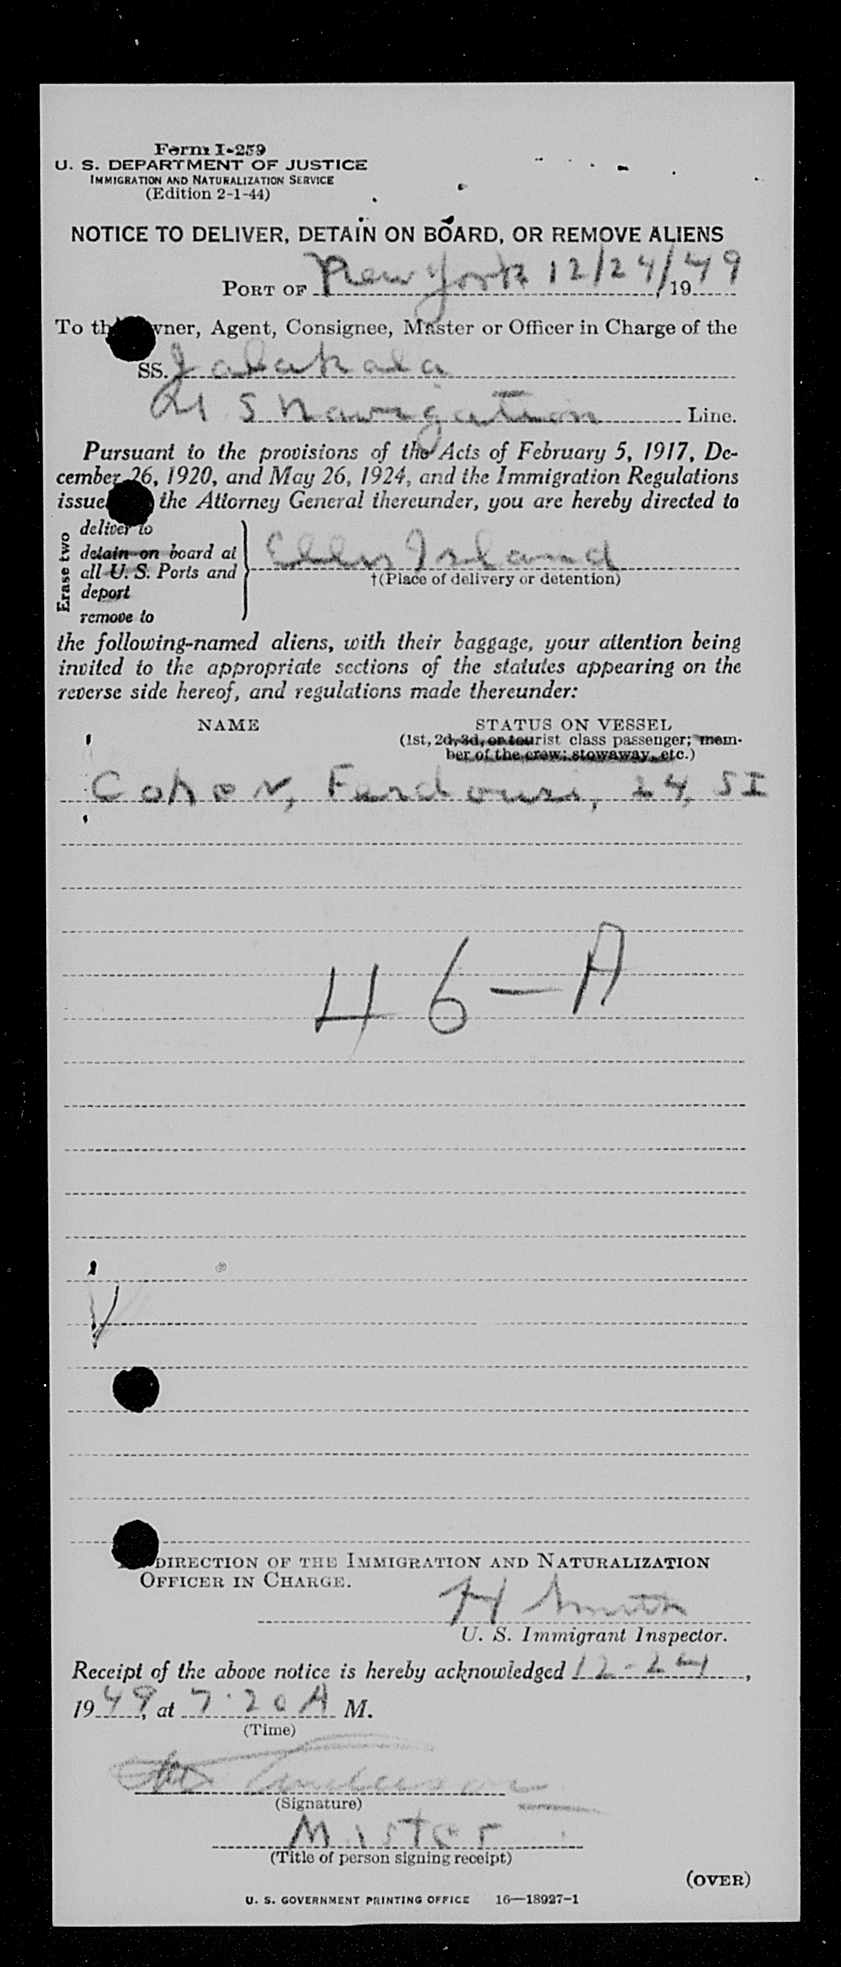 Form I-259
U. S. DEPARTMENT OF JUSTICE
IMMIGRATION AND NATURALIZATION SERVICE
(Edition 2-1-44)
NOTICE TO DELIVER, DETAIN ON BOARD, OR REMOVE ALIENS
PORT OF New York 12/24/1949
To the Owner, Agent, Consignee, Master or Officer in Charge of the
SS. Jalakala
U S Navigation Line.
Pursuant to the provisions of the Acts of February 5, 1917, De-
cember 26, 1920, and May 26, 1924, and the Immigration Regulations
issue the Attorney General thereunder, you are hereby directed to
Erase two
deliver to
detain on board at
all U. S. Ports and
deport
remove to
Ellis Island
†(Place of delivery or detention)
the following-named aliens, with their baggage, your attention being
invited to the appropriate sections of the statutes appearing on the
reverse side hereof, and regulations made thereunder:
NAME STATUS ON VESSEL
(1st, 2d, 3d, or tourist class passenger; mem-
ber of the crew; stowaway, etc.)
24, SI
46-A
DIRECTION OF THE IMMIGRATION AND NATURALIZATION
OFFICER IN CHARGE.
H Smith
U. S. Immigrant Inspector.
Receipt of the above notice is hereby acknowledged 12-24,
1949, at 7:20 A M.
(Time)
Anderson
(Signature)
(Title of person signing receipt)
(OVER)
U. S. GOVERNMENT PRINTING OFFICE 16—18927-1